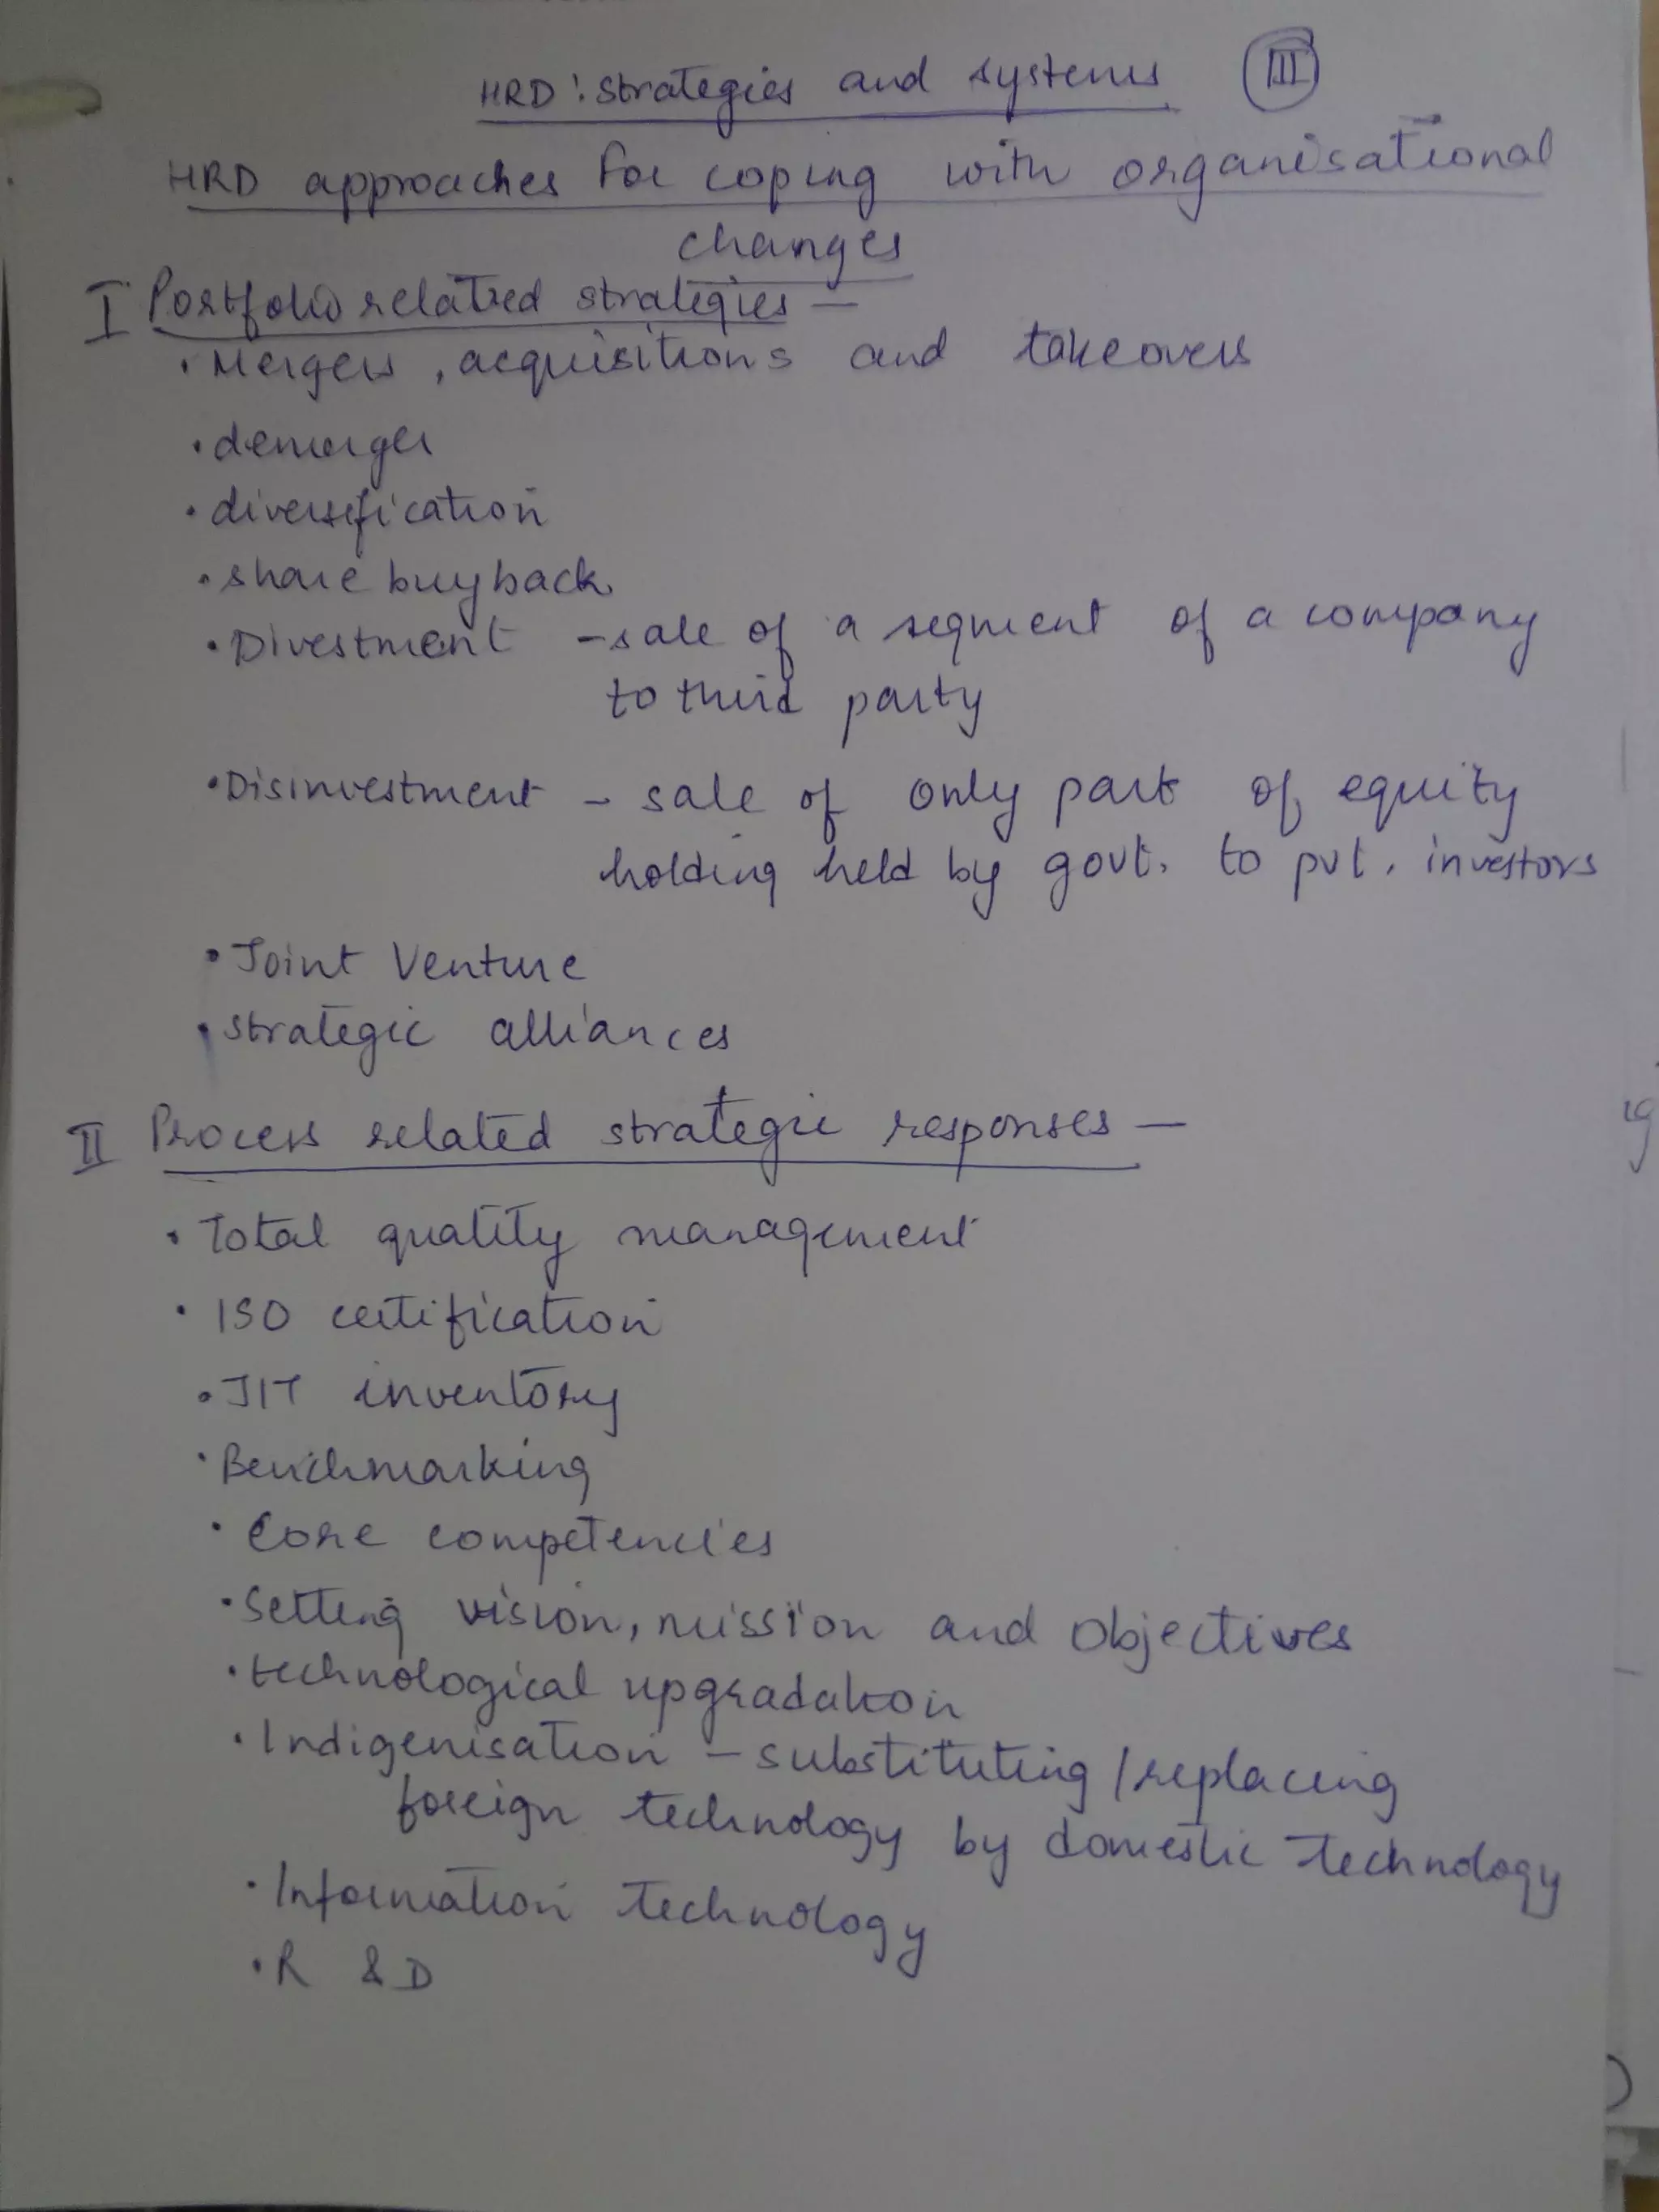 HRD : Strategies and systems III
HRD approaches for coping with organisational
changes
I Portfolio related strategies —
• Mergers, acquisitions and takeovers
• demerger
• diversification
• share buyback
• Divestment – sale of a segment of a company
to third party
• Disinvestment – sale of only part of equity
holding held by govt. to pvt. investors
• Joint Venture
• strategic alliances
II Process related strategic responses —
• Total quality management
• ISO certification
• JIT inventory
• Benchmarking
• Core competencies
• Setting vision, mission and objectives
• technological upgradation
• Indigenisation – substituting / replacing
foreign technology by domestic technology
• Information technology
• R & D